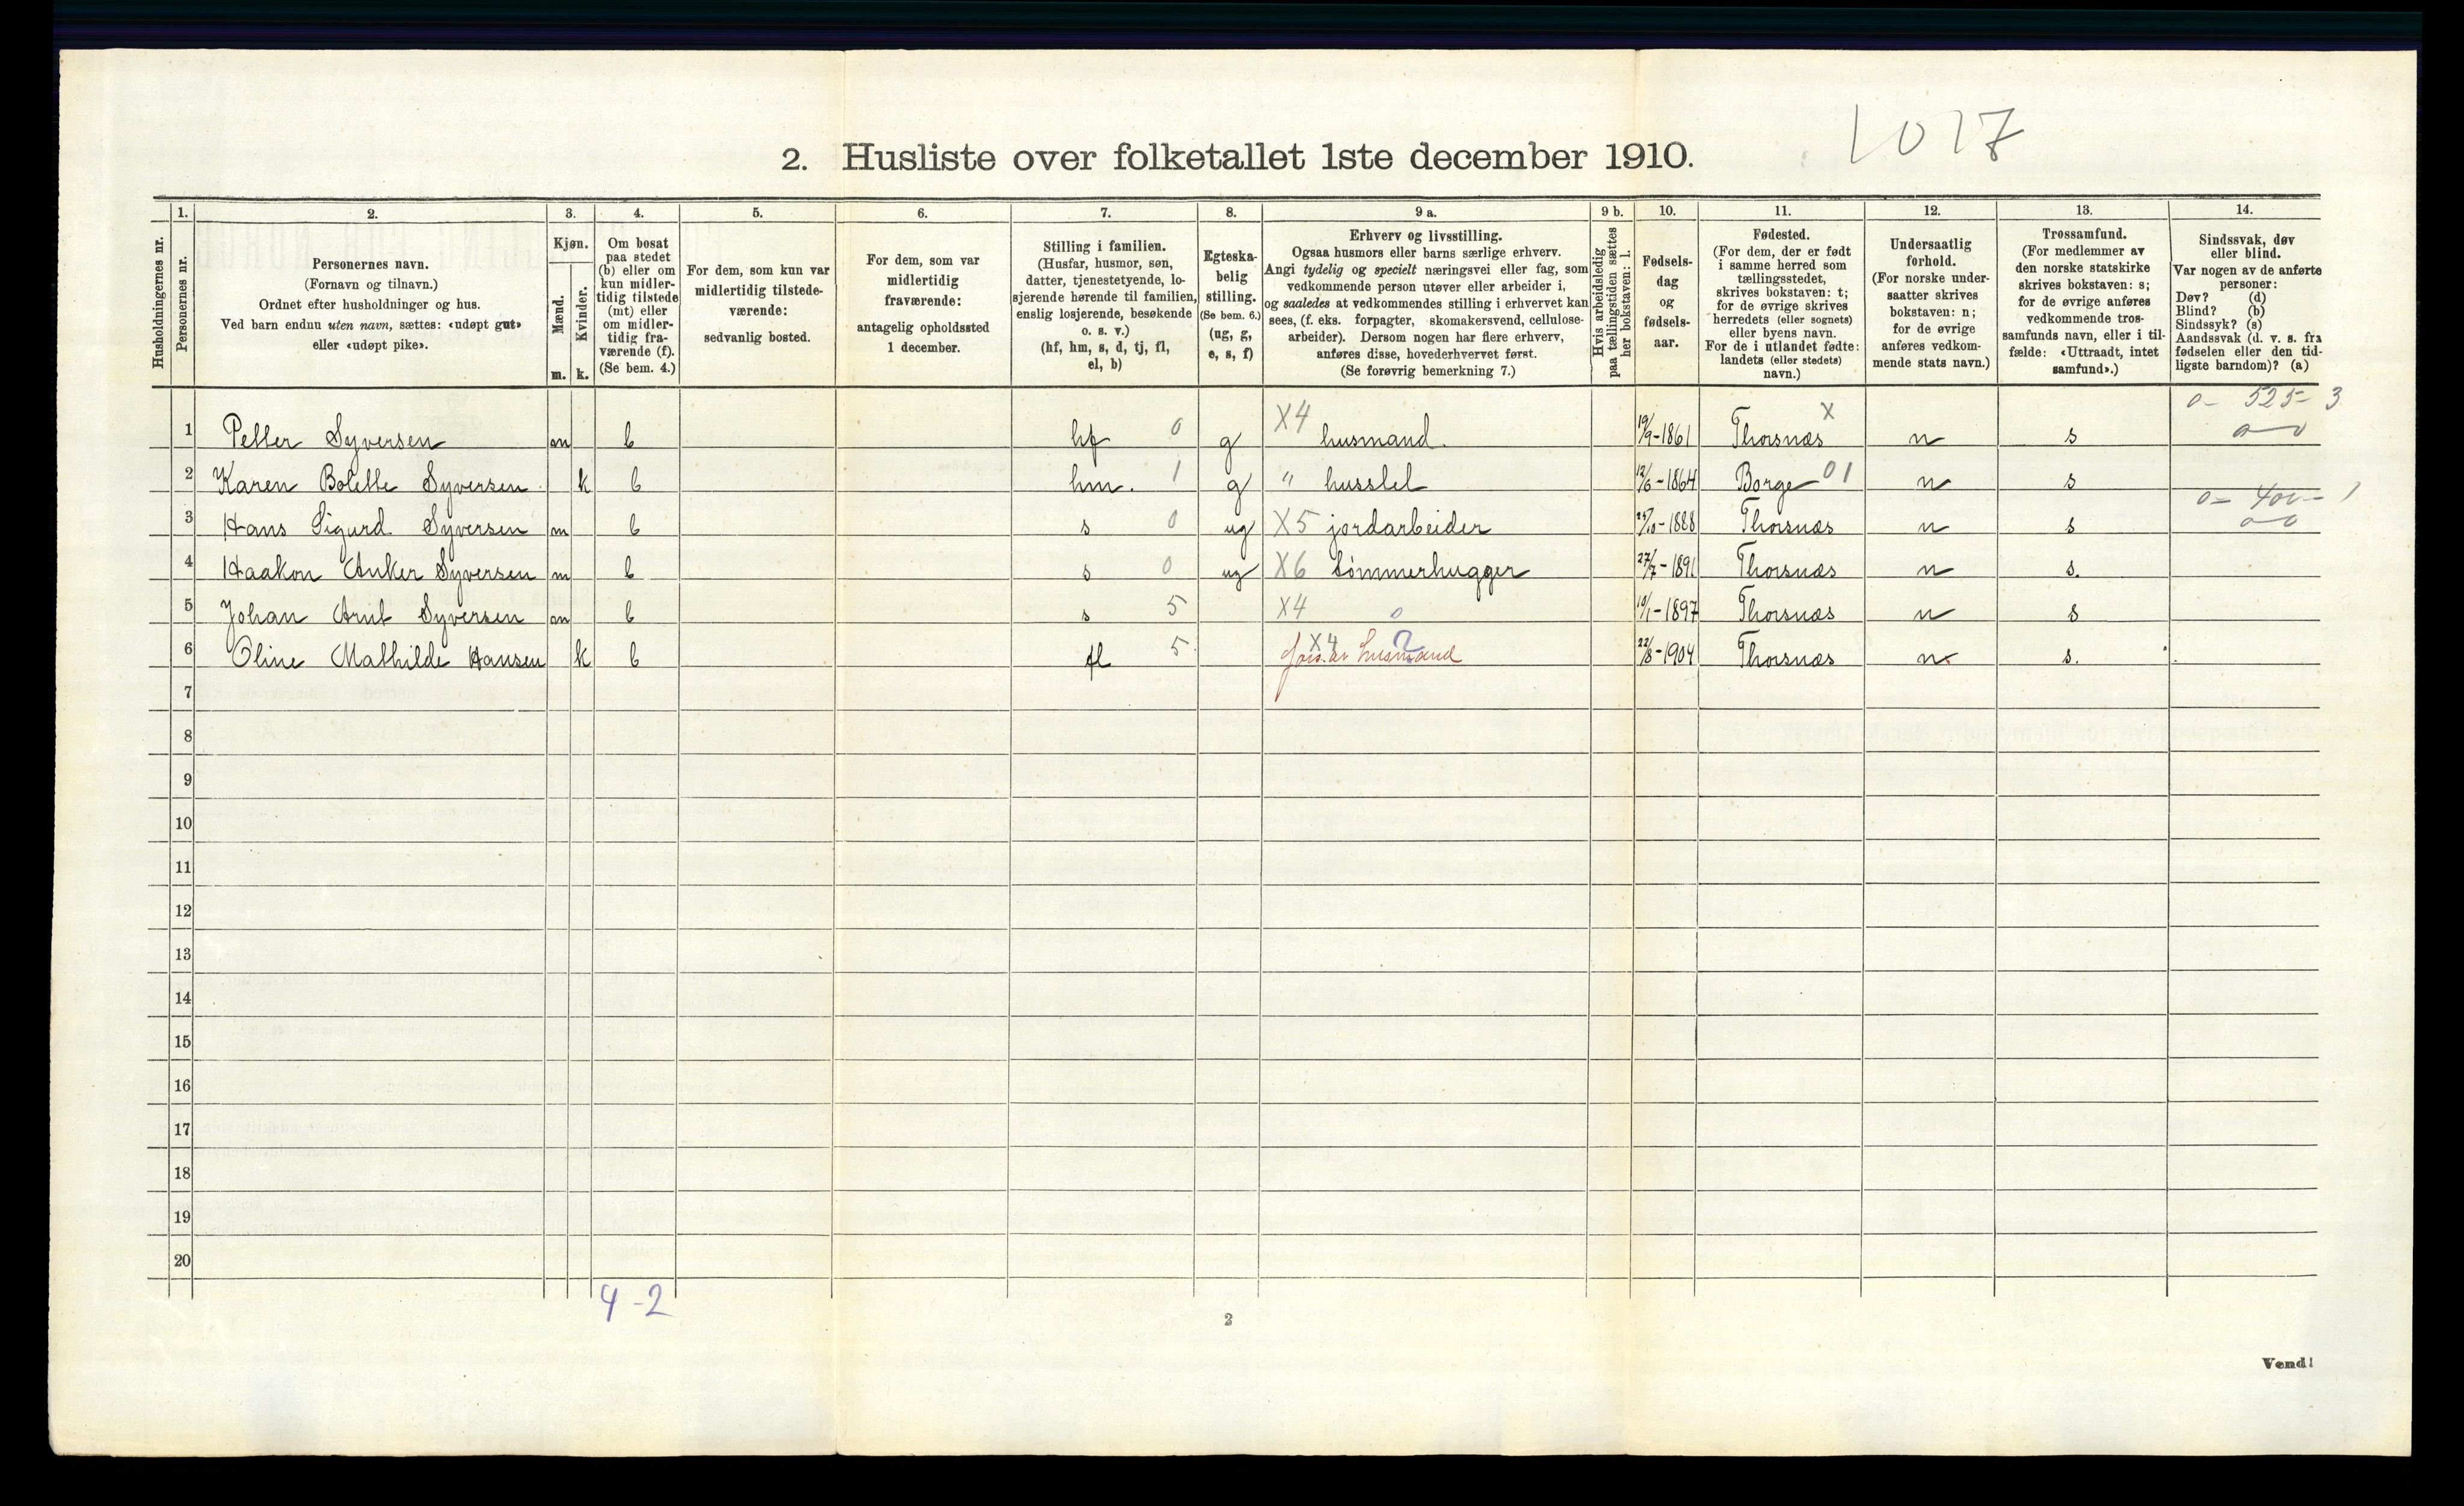 1017
2. Husliste over folketallet 1ste december 1910.
Husholdningernes nr.
1. Personernes nr.
2. Personernes navn.
(Fornavn og tilnavn.)
Ordnet efter husholdninger og hus.
Ved barn endnu uten navn, sættes: «udøpt gut»
eller «udøpt pike».
3. Kjøn.
Mænd. Kvinder.
m. k.
4. Om bosat
paa stedet
(b) eller om
kun midler-
tidig tilstede
(mt) eller
om midler-
tidig fra-
værende (f).
(Se bem. 4.)
5. For dem, som kun var
midlertidig tilstede-
værende:
sedvanlig bosted.
6. For dem, som var
midlertidig
fraværende:
antagelig opholdssted
1 december.
7. Stilling i familien.
(Husfar, husmor, søn,
datter, tjenestetyende, lo-
sjerende hørende til familien,
enslig losjerende, besøkende
o. s. v.)
(hf, hm, s, d, tj, fl,
el, b)
8. Egteska-
belig
stilling.
(Se bem. 6.)
(ug, g,
e, s, f)
9 a. Erhverv og livsstilling.
Ogsaa husmors eller barns særlige erhverv.
Angi tydelig og specielt næringsvei eller fag, som
vedkommende person utøver eller arbeider i,
og saaledes at vedkommendes stilling i erhvervet kan
sees, (f. eks. forpagter, skomakersvend, cellulose-
arbeider). Dersom nogen har flere erhverv,
anføres disse, hovederhvervet først.
(Se forøvrig bemerkning 7.)
9 b. Hvis arbeidsledig
paa tællingstiden sættes
her bokstaven: l.
10. Fødsels-
dag
og
fødsels-
aar.
11. Fødested.
(For dem, der er født
i samme herred som
tællingsstedet,
skrives bokstaven: t;
for de øvrige skrives
herredets (eller sognets)
eller byens navn.
For de i utlandet fødte:
landets (eller stedets)
navn.)
12. Undersaatlig
forhold.
(For norske under-
saatter skrives
bokstaven: n;
for de øvrige
anføres vedkom-
mende stats navn.)
13. Trossamfund.
(For medlemmer av
den norske statskirke
skrives bokstaven: s;
for de øvrige anføres
vedkommende tros-
samfunds navn, eller i til-
fælde: «Uttraadt, intet
samfund».)
14. Sindssvak, døv
eller blind.
Var nogen av de anførte
personer:
Døv? (d)
Blind? (b)
Sindssyk? (s)
Aandssvak (d. v. s. fra
fødselen eller den tid-
ligste barndom)? (a)
0- 525- 3
1 Petter Syversen m b hf 0 g X4 husmand. 19/9-1861 Thorsnæs X n s 0-0
2 Karen Bolette Syversen k b hm. 1 g " husstel 12/6-1864 Borge 01 n s
0- 400- 1
3 Hans Sigurd Syversen m b s 0 ug X5 jordarbeider 25/10-1888 Thorsnæs n s 0-0
4 Haakon Anker Syversen m b s 0 ug X6 tömmerhugger 27/7-1891 Thorsnæs n s.
5 Johan Arnt Syversen m b s 5 X4 0 10/1-1897 Thorsnæs n s
6 Oline Mathilde Hansen k b fl 5. X4 2 fors. av husmand 22/8-1904 Thorsnæs n s.
7
8
9
10
11
12
13
14
15
16
17
18
19
20
4-2
2
Vend!